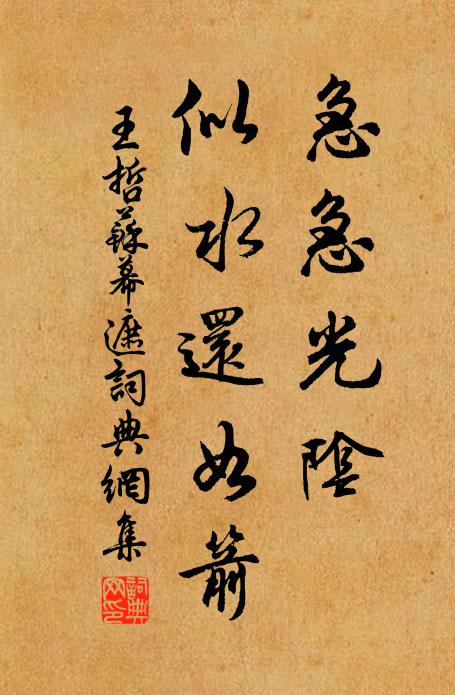 急急光陰
似水還如箭
王哲蘇幕遮詞典網集
詞典網印